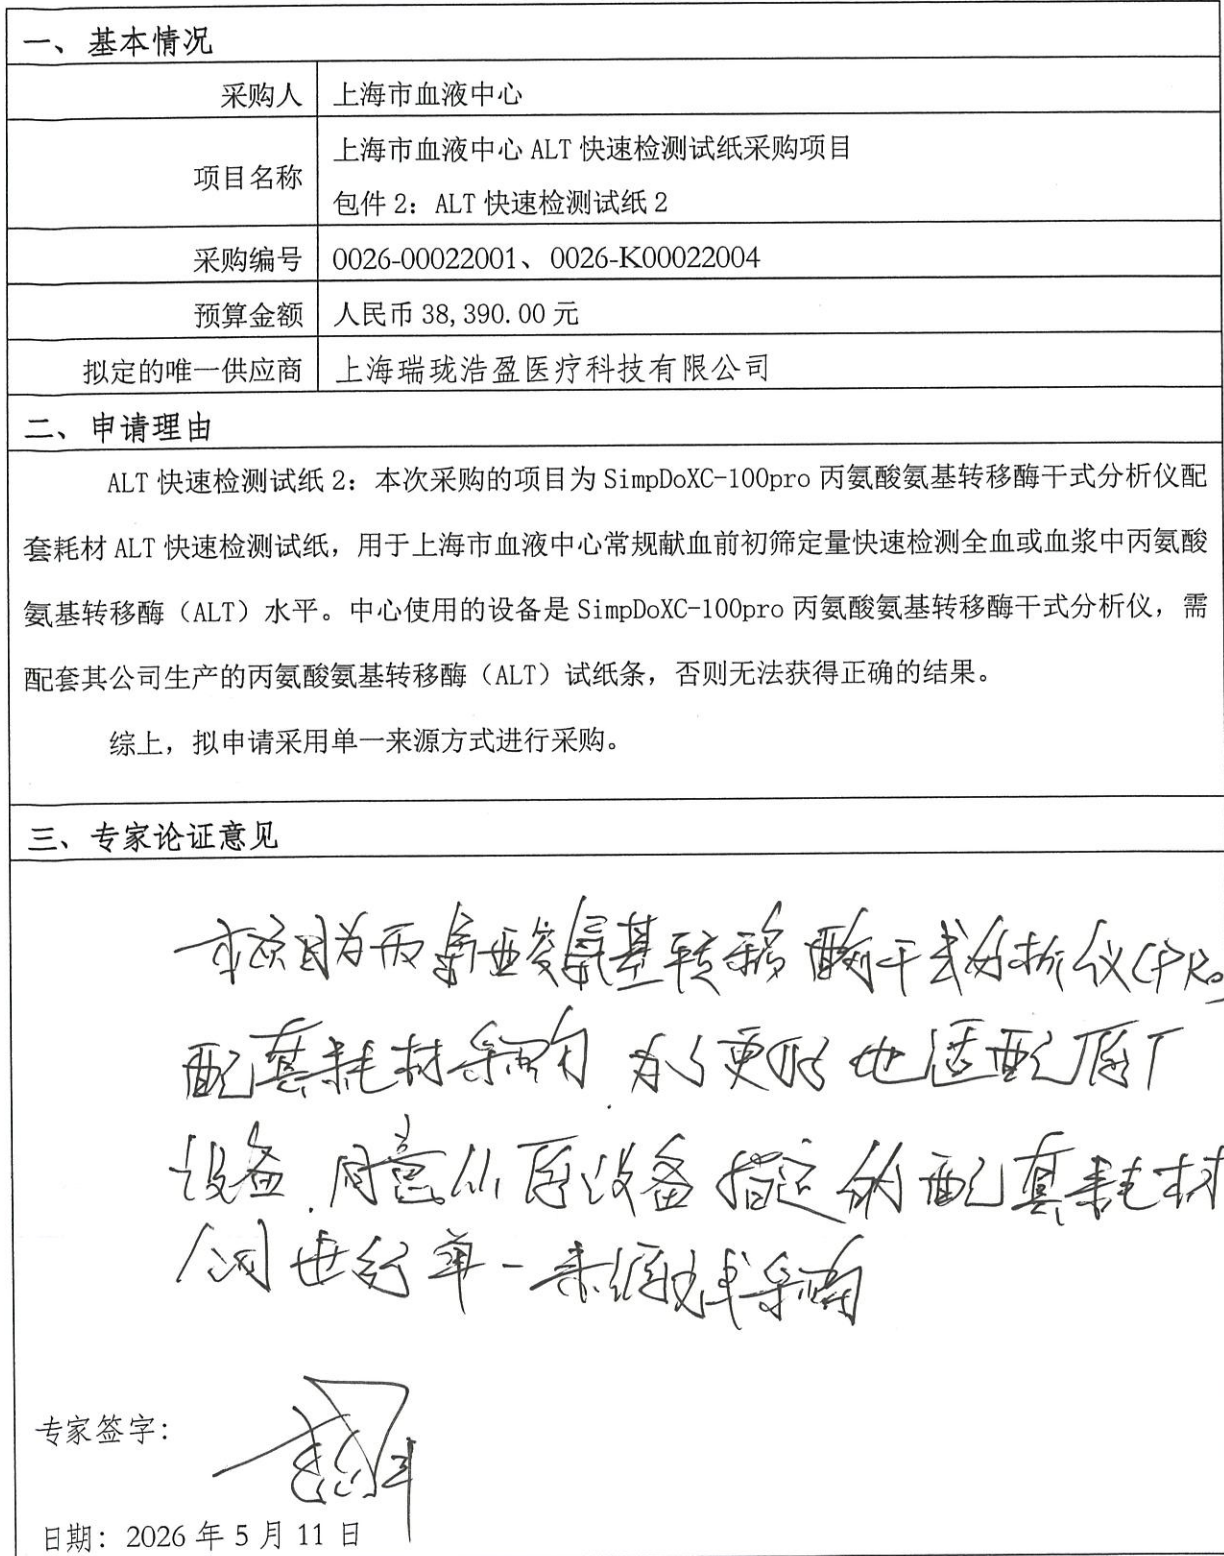 一、基本情况
采购人 上海市血液中心
项目名称 上海市血液中心 ALT 快速检测试纸采购项目
包件 2：ALT 快速检测试纸 2
采购编号 0026-00022001、0026-K00022004
预算金额 人民币 38,390.00 元
拟定的唯一供应商 上海瑞珑浩盈医疗科技有限公司
二、申请理由
ALT 快速检测试纸 2：本次采购的项目为 SimpDoXC-100pro 丙氨酸氨基转移酶干式分析仪配
套耗材 ALT 快速检测试纸，用于上海市血液中心常规献血前初筛定量快速检测全血或血浆中丙氨酸
氨基转移酶（ALT）水平。中心使用的设备是 SimpDoXC-100pro 丙氨酸氨基转移酶干式分析仪，需
配套其公司生产的丙氨酸氨基转移酶（ALT）试纸条，否则无法获得正确的结果。
综上，拟申请采用单一来源方式进行采购。
三、专家论证意见
本项目为丙氨酸氨基转移酶干式分析仪(PRO
配套耗材采购.为了更好地适配原厂
设备.同意从原设备指定的配套耗材
公司进行单一来源方式采购
专家签字：
日期：2026 年 5 月 11 日